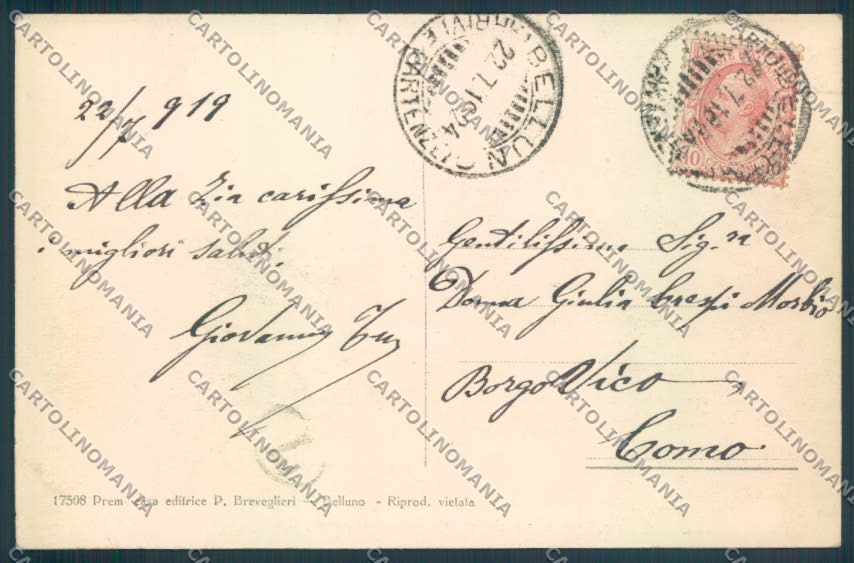 22/7 919
Alla Zia carissima
i migliori saluti
Giovanni
Gentilissima Sig.ra
Donna Giulia Crespi Morbio
Borgo Vico
Como
BELLUNO
ARRIVI E PARTENZE
22.7.19.24
10
17508 Prem. casa editrice P. Breveglieri — Belluno - Riprod. vietata
CARTOLINOMANIA